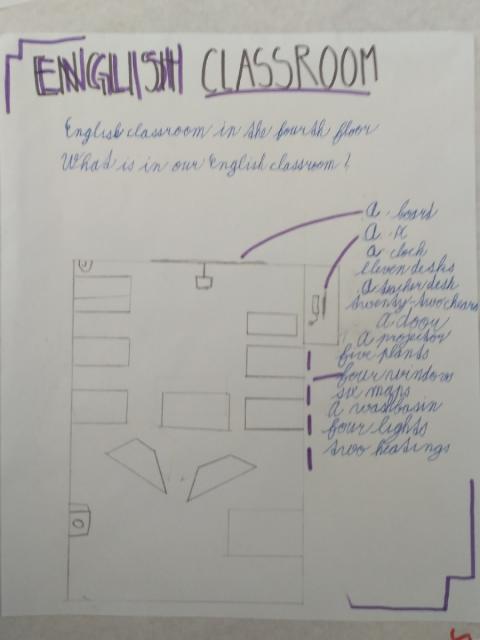 ENGLISH CLASSROOM
English classroom in the fourth floor
What is in our English classroom?
a board
a
a clock
eleven desks
a teacher desk
twenty-two chears
a door
a projector
five plants
four windows
six maps
a washbasin
four lights
two heatings